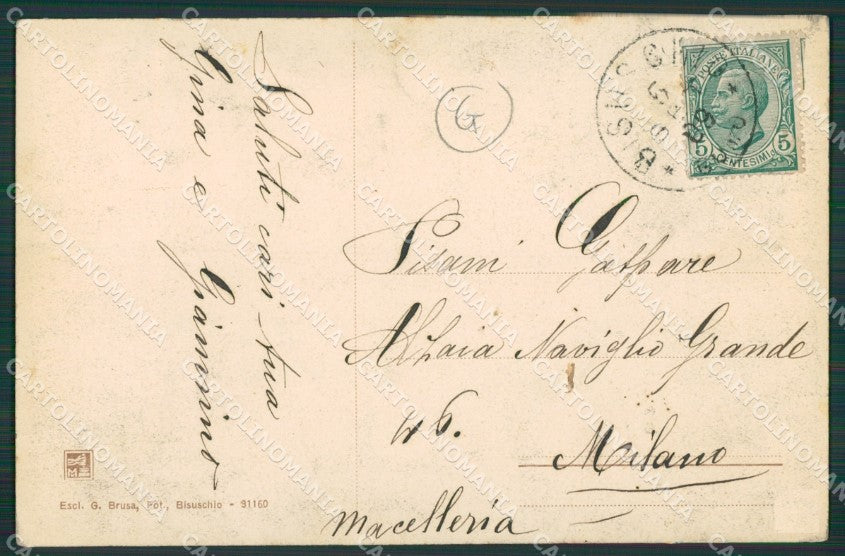 Saluti cari tua
Gina e Giannino
G
BISUSCHIO
POSTE ITALIANE
5 CENTESIMI 5
Pisani Gaspare
Alzaia Naviglio Grande
46.
Milano
Macelleria
Escl. G. Brusa, Fot., Bisuschio - 31160
CARTOLINOMANIA